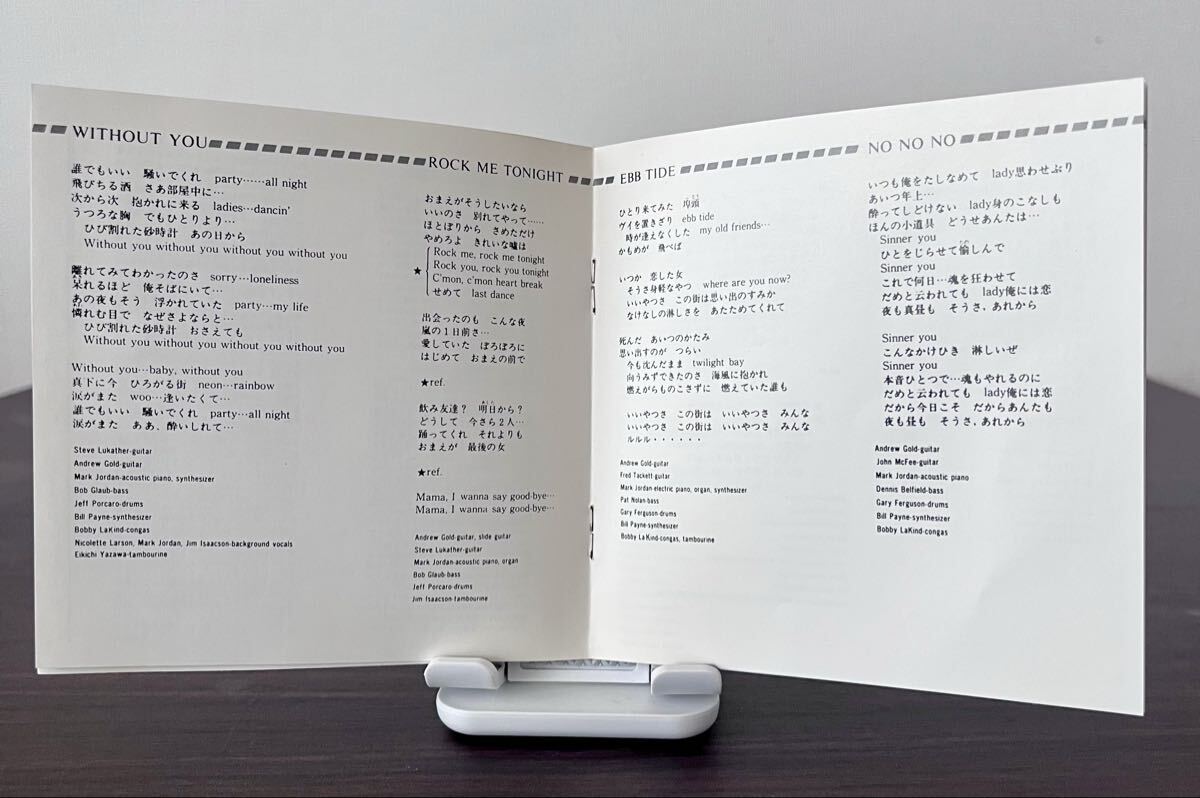 WITHOUT YOU
誰でもいい 騒いでくれ party……all night
飛びちる酒 さあ部屋中に…
次から次 抱かれに来る ladies…dancin'
うつろな胸 でもひとり より…
ひび割れた砂時計 あの日から
Without you without you without you without you
離れてみてわかったのさ sorry…loneliness
呆れるほど 俺そばにいて…
あの夜もそう 浮かれていた party…my life
憐れむ目で なぜさよならと…
ひび割れた砂時計 おさえても
Without you without you without you without you
Without you…baby, without you
真下に今 ひろがる街 neon…rainbow
涙がまた woo…逢いたくて…
誰でもいい 騒いでくれ party…all night
涙がまた ああ、酔いしれて…
Steve Lukather-guitar
Andrew Gold-guitar
Mark Jordan-acoustic piano, synthesizer
Bob Glaub-bass
Jeff Porcaro-drums
Bill Payne-synthesizer
Bobby LaKind-congas
Nicolette Larson, Mark Jordan, Jim Isaacson-background vocals
Eikichi Yazawa-tambourine
ROCK ME TONIGHT
おまえがそうしたいなら
いいのさ 別れてやって……
ほとぼりから さめただけ
やめろよ きれいな嘘は
★
Rock me, rock me tonight
Rock you, rock you tonight
C'mon, c'mon heart break
せめて last dance
出会ったのも こんな夜
嵐の1日前さ…
愛していた ぼろぼろに
はじめて おまえの前で
★ref.
飲み友達? 明日から?
どうして 今さら2人…
踊ってくれ それよりも
おまえが 最後の女
★ref.
Mama, I wanna say good-bye…
Mama, I wanna say good-bye…
Andrew Gold-guitar, slide guitar
Steve Lukather-guitar
Mark Jordan-acoustic piano, organ
Bob Glaub-bass
Jeff Porcaro-drums
Jim Isaacson-tambourine
EBB TIDE
ひとり来てみた 埠頭
ヴイを置きざり ebb tide
時が逢えなくした my old friends…
かもめが 飛べば
いつか 恋した女
そうさ身軽なやつ where are you now?
いいやつさ この街は思い出のすみか
なけなしの淋しさを あたためてくれて
死んだ あいつのかたみ
思い出すのが つらい
今も沈んだまま twilight bay
向うみずできたのさ 海風に抱かれ
燃えがらものこさずに 燃えていた誰も
いいやつさ この街は いいやつさ みんな
いいやつさ この街は いいやつさ みんな
ルルル・・・・・・
Andrew Gold-guitar
Fred Tackett-guitar
Mark Jordan-electric piano, organ, synthesizer
Pat Nolan-bass
Gary Ferguson-drums
Bill Payne-synthesizer
Bobby LaKind-congas, tambourine
NO NO NO
いつも俺をたしなめて lady思わせぶり
あいつ年上…
酔ってしどけない lady身のこなしも
ほんの小道具 どうせあんたは…
Sinner you
ひとをじらせて愉しんで
Sinner you
これで何日…魂を狂わせて
だめと云われても lady俺には恋
夜も真昼も そうさ,あれから
Sinner you
こんなかけひき 淋しいぜ
Sinner you
本音ひとつで…魂もやれるのに
だめと云われても lady俺には恋
だから今日こそ だからあんたも
夜も昼も そうさ,あれから
Andrew Gold-guitar
John McFee-guitar
Mark Jordan-acoustic piano
Dennis Belfield-bass
Gary Ferguson-drums
Bill Payne-synthesizer
Bobby LaKind-congas